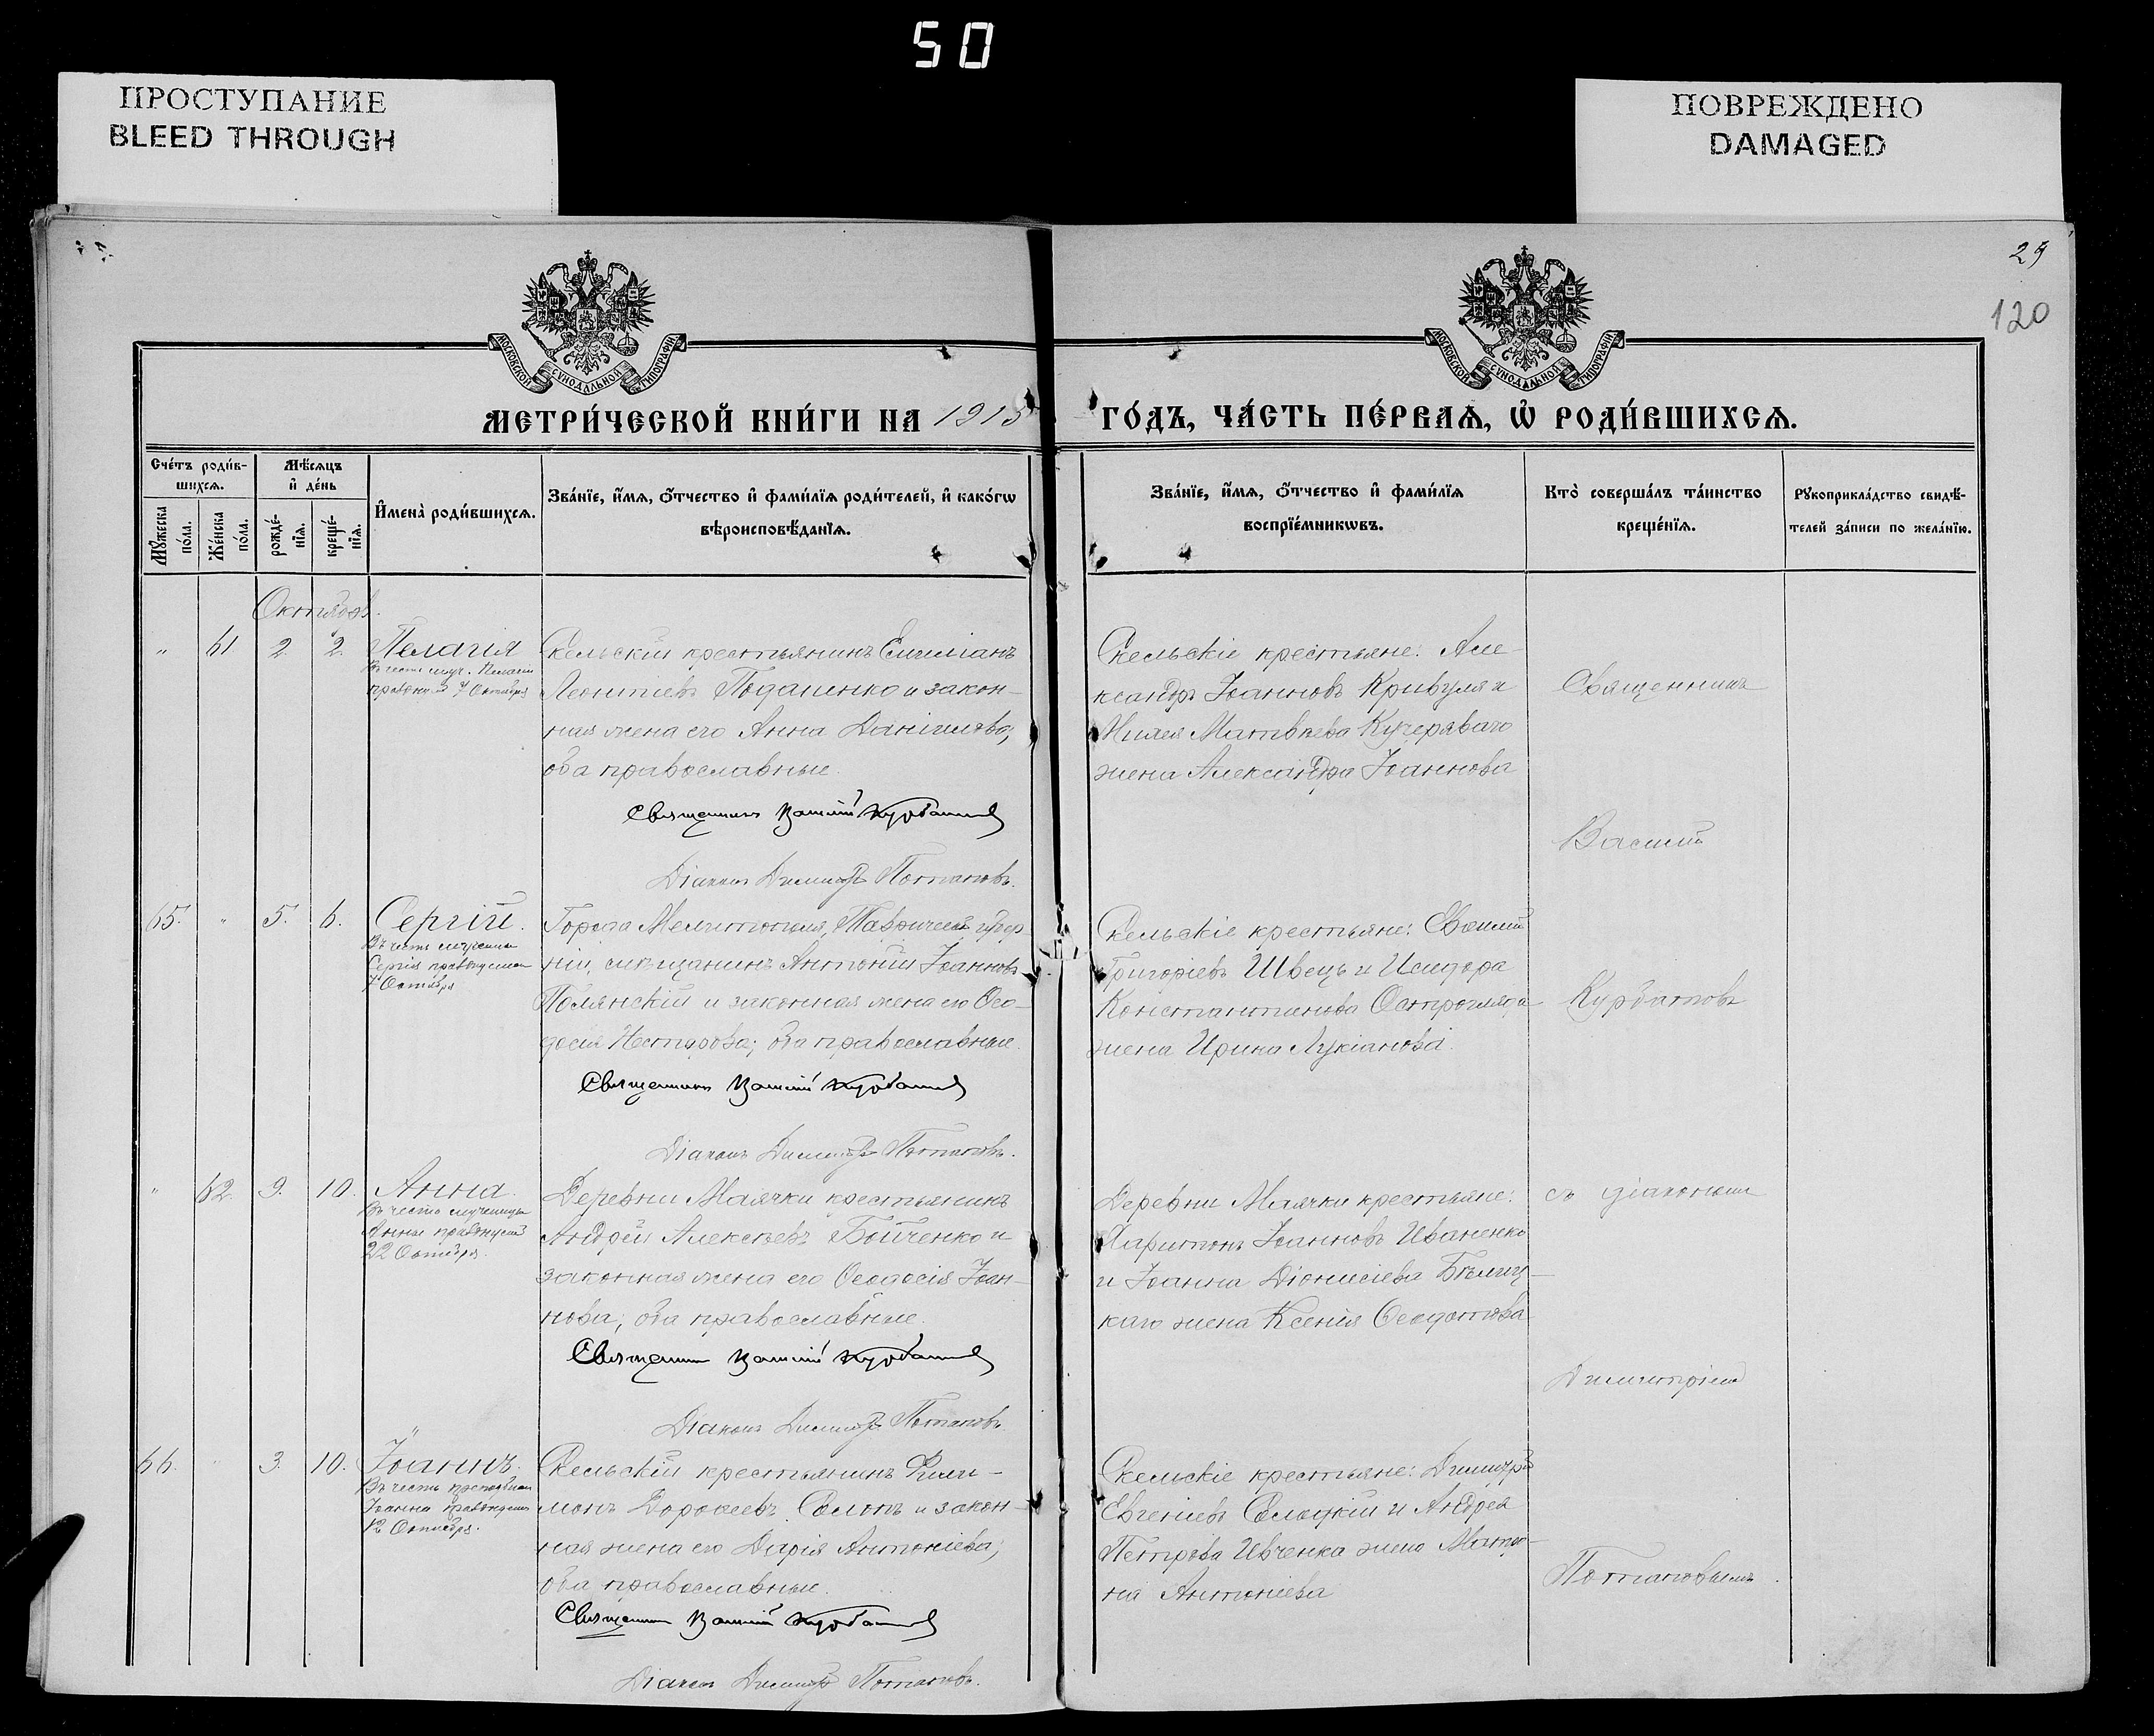 50
ПРОСТУПАНИЕ
BLEED THROUGH
ПОВРЕЖДЕНО
DAMAGED
29
120
МОСКОВСКОЙ СѴНОДАЛЬНОЙ ТИПОГРАФІИ
МОСКОВСКОЙ СѴНОДАЛЬНОЙ ТИПОГРАФІИ
МЕТРИ́ЧЕСКОЙ КНИ́ГИ НА 1915 ГО́ДЪ, ЧА́СТЬ ПЕ́РВАѦ, Ѡ҆ РОДИ́ВШИХСѦ.
Сче́тъ роди́в-
шихсѧ.
Мѣ́сѧцъ
и҆ де́нь
Мꙋ́жеска
по́ла.
Же́нска
по́ла.
рожде́-
нїѧ.
креще́-
нїѧ.
И҆мена̀ роди́вшихсѧ.
Зва́нїе, и҆́мѧ, ѻ҆́тчество и҆ фами́лїѧ роди́телей, и҆ како́гѡ
вѣроисповѣ́данїѧ.
Зва́нїе, и҆́мѧ, ѻ҆́тчество и҆ фами́лїѧ
воспрїе́мникѡвъ.
Кто̀ соверша́лъ та́инство
креще́нїѧ.
Рꙋкоприкла́дство свидѣ́-
телей за́писи по жела́нїю.
Октябрь.
" 61 2. 2. Пелагія
Въ честь муч. Пелагіи
празднуем. 7 Октября
Скельскій крестьянинъ Емиліанъ
Леонтіевъ Поданенко и закон-
ная жена его Анна Даніилова;
оба православные.
Священникъ Василій Курбатовъ
Діаконъ Димитрій Потаповъ.
Скельскіе крестьяне: Але-
ксандръ Іоанновъ Кривуля и
Матвѣева Кучеряваго
жена Александра Іоаннова
65. " 5. 6. Сергій.
Въ честь мученика
Сергія празднуемаго
7 Октября
Города Мелитополя, Таврической губер
ніи, мѣщанинъ Антоній Іоанновъ
Полянскій и законная жена его Ѳео-
досія Несторова; оба православные.
Священникъ Василій Курбатовъ
Діаконъ Димитрій Потаповъ.
Скельскіе крестьяне:
Григоріевъ Швецъ и Исидора
Константинова Остроглядa
жена Ирина Лукіанова.
" 62. 9. 10. Анна.
Въ честь мученицы
Анны празднуемой
22 Октября.
Деревни Маячки крестьянинъ
Андрей Алексѣевъ Бойченко и
законная жена его Ѳеодосія Іоан-
нова; оба православные.
Священникъ Василій Курбатовъ
Діаконъ Димитрій Потаповъ.
Деревни Маячки крестьяне:
Харитонъ Іоанновъ Иваненко
и Іоанна Діонисіева Бѣлиц-
каго жена Ксенія Ѳеодотова
66. " 3. 10. Іоаннъ.
Въ честь преподобнаго
Іоанна празднуемаго
12 Октября.
Скельскій крестьянинъ Фили-
монъ Дороѳеевъ Солопъ и закон-
ная жена его Дарія Антоніева;
оба православные.
Священникъ Василій Курбатовъ
Діаконъ Димитрій Потаповъ.
Скельскіе крестьяне: Димитрій
Евгеніевъ и Андрея
Петрова Ивченка жена Матро-
на Антоніева
Священникъ
Василій
Курбатовъ
съ діакономъ
Димитріемъ
Потаповымъ.